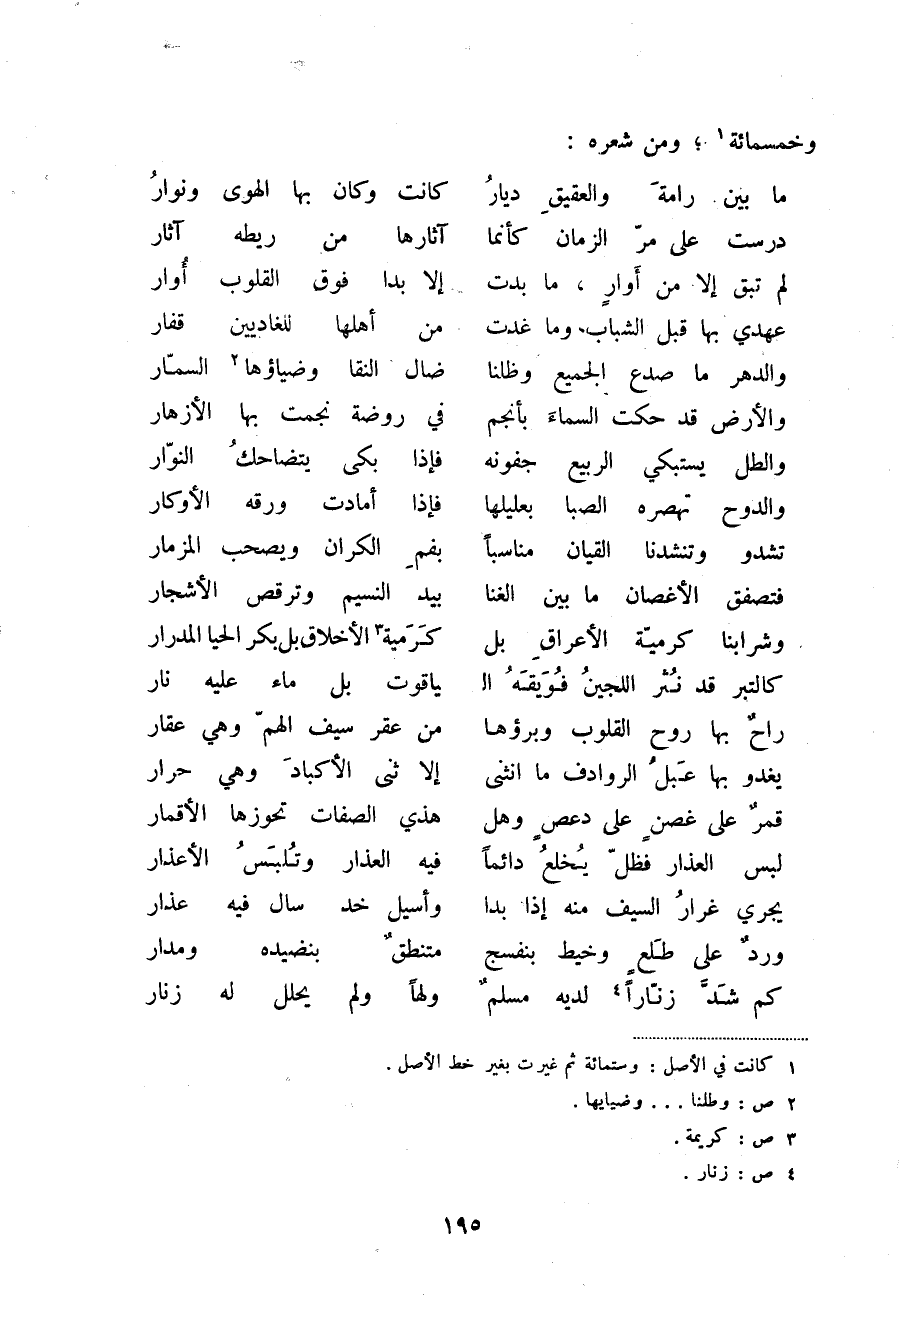 وخمسمائة١ ؛ ومن شعره :
ما بين رامةَ والعقيقِ ديارُ كانت وكان بها الهوى ونوارُ
درست على مرّ الزمان كأنما آثارها من ريطه آثار
لم تبق إلا من أَوارٍ ، ما بدت إلا بدا فوق القلوب أُوار
عهدي بها قبل الشباب وما غدت من أهلها للغاديين قفار
والدهر ما صدع الجميع وظلنا ضال النقا وضياؤها٢ السمّار
والأرض قد حكت السماءَ بأنجم في روضة نجمت بها الأزهار
والطل يستبكي الربيع جفونه فإذا بكى يتضاحكُ النوّار
والدوح تهصره الصبا بعليلها فإذا أمادت ورقه الأوكار
تشدو وتنشدنا القيان مناسباً بفمِ الكران ويصحب المزمار
فتصفق الأغصان ما بين الغنا بيد النسيم وترقص الأشجار
وشرابنا كرميّة الأعراقِ بل كَرَمية٣ الأخلاق بل بكر الحيا المدرار
كالتبر قد نُثر اللجينُ فُوَيقَهُ ال ياقوت بل ماء عليه نار
راحٌ بها روح القلوب وبرؤها من عقر سيف الهمّ وهي عقار
يغدو بها عَبلُ الروادف ما انثنى إلا ثنى الأكبادَ وهي حرار
قمرٌ على غصنٍ على دعصٍ وهل هذي الصفات تحوزها الأقمار
لبس العذار فظلّ يُخلعُ دائماً فيه العذار وتُلبَسُ الأعذار
يجري غرارُ السيف منه إذا بدا وأسيل خد سال فيه عذار
وردٌ على طَلعٍ وخيط بنفسج متنطقٌ بنضيده ومدار
كم شَدَّ زنّاراً٤ لديه مسلمٌ ولهاً ولم يحلل له زنار
١ كانت في الأصل : وستمائة ثم غيرت بغير خط الأصل .
٢ ص : وطلنا . . . وضيايها .
٣ ص : كريمة .
٤ ص : زنار .
١٩٥